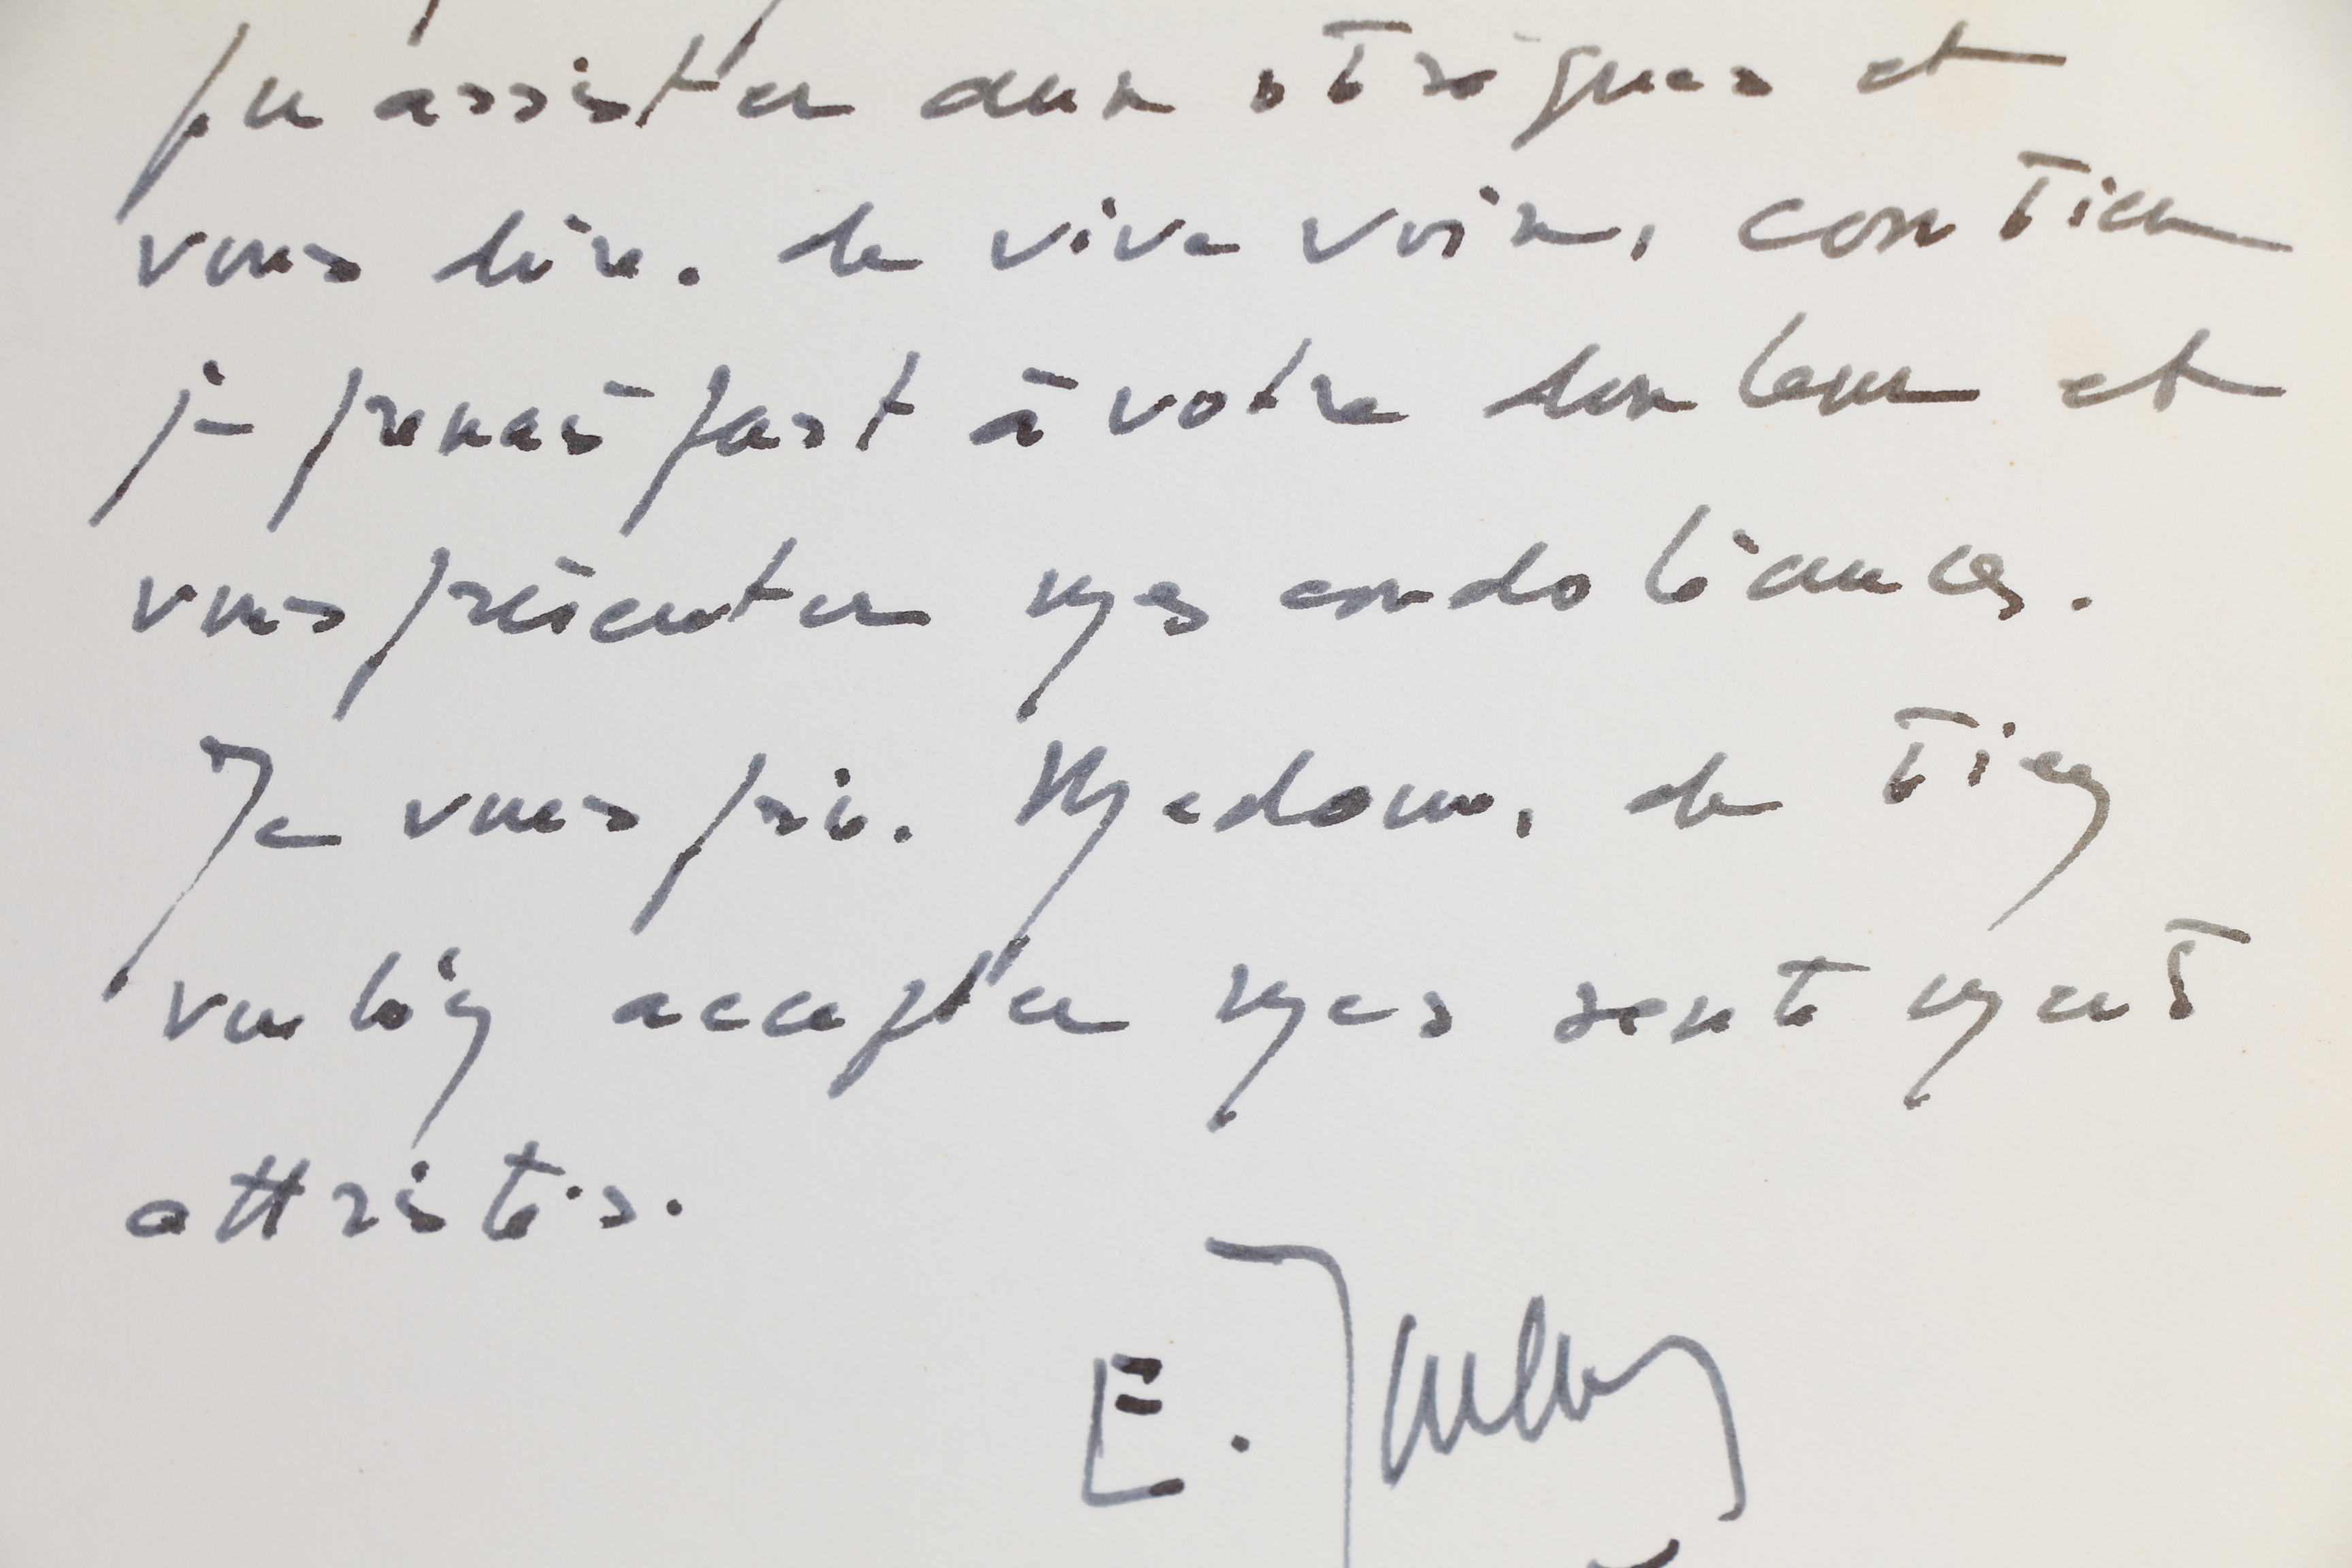 pu assister aux obsèques et
vous dire. de vive voix, combien
je prends part à votre douleur et
vous présenter mes condoléances.
Je vous prie. Madame, de bien
vouloir accepter mes sentiments
attristés.
E.